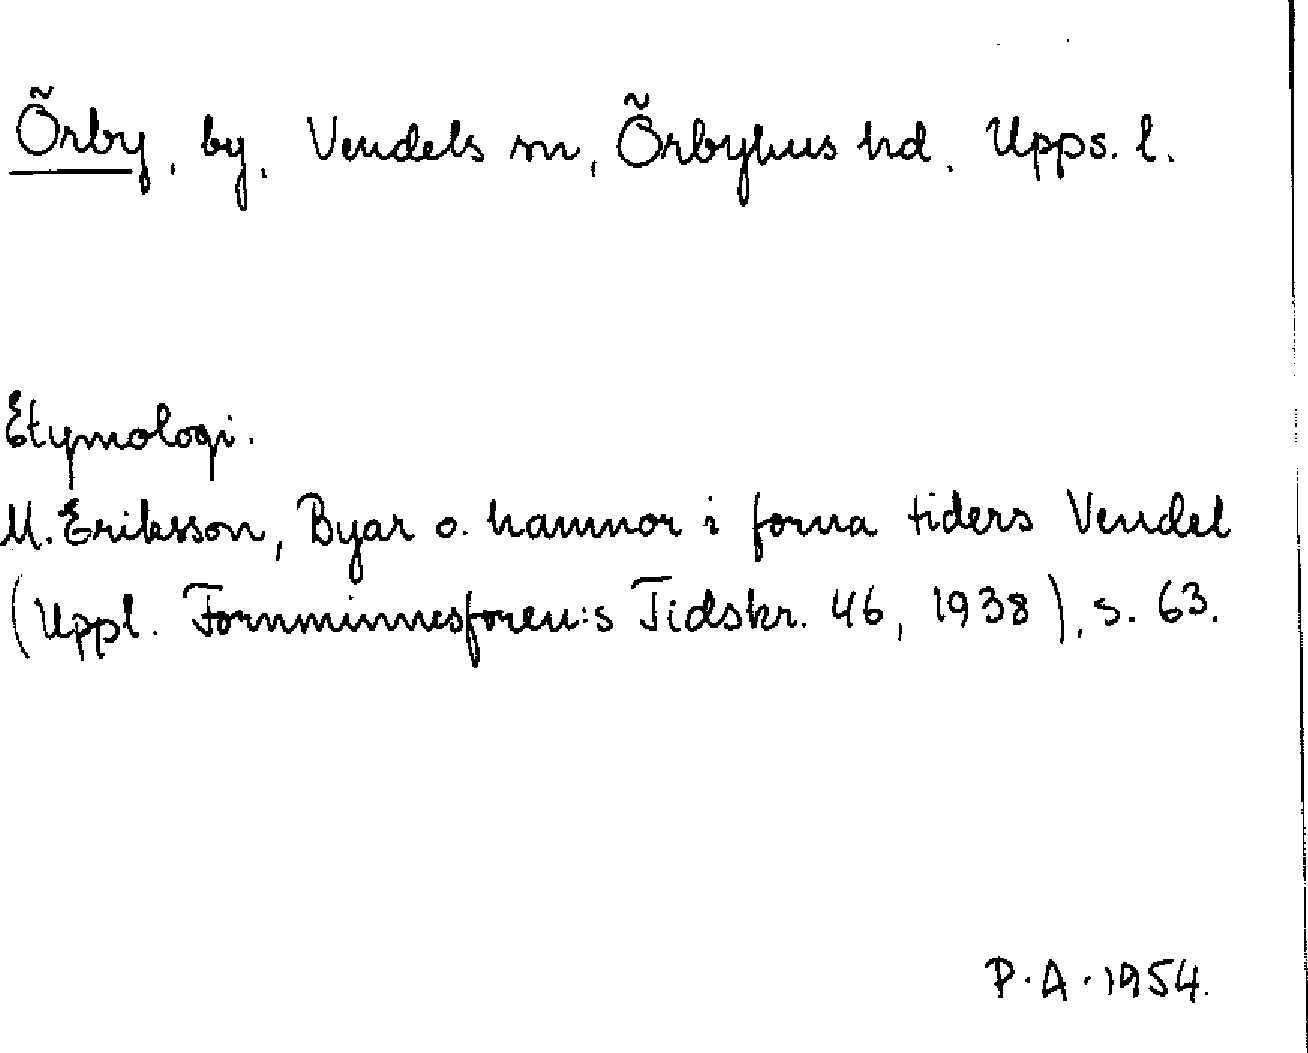 Örby, by, Vendels sn, Örbyhus hd, Upps. l.
Etymologi.
M. Eriksson, Byar o. hamnor i forna tiders Vendel
(Uppl. Fornminnesfören:s Tidskr. 46, 1938), s. 63.
P.A. 1954.